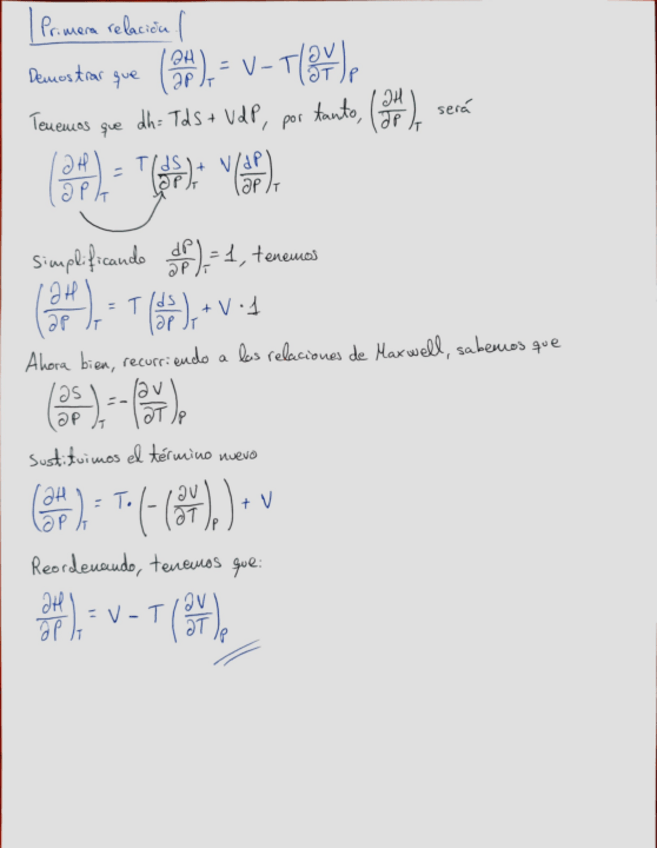 Primera relación
Demostrar que (∂H/∂P)_T = V − T(∂V/∂T)_P
Tenemos que dh = TdS + VdP, por tanto, (∂H/∂P)_T será
(∂H/∂P)_T = T(dS/∂P)_T + V(dP/∂P)_T
Simplificando dP/∂P)_T = 1, tenemos
(∂H/∂P)_T = T(dS/∂P)_T + V · 1
Ahora bien, recurriendo a las relaciones de Maxwell, sabemos que
(∂S/∂P)_T = −(∂V/∂T)_P
Sustituimos el término nuevo
(∂H/∂P)_T = T·(−(∂V/∂T)_P) + V
Reordenando, tenemos que:
∂H/∂P)_T = V − T(∂V/∂T)_P